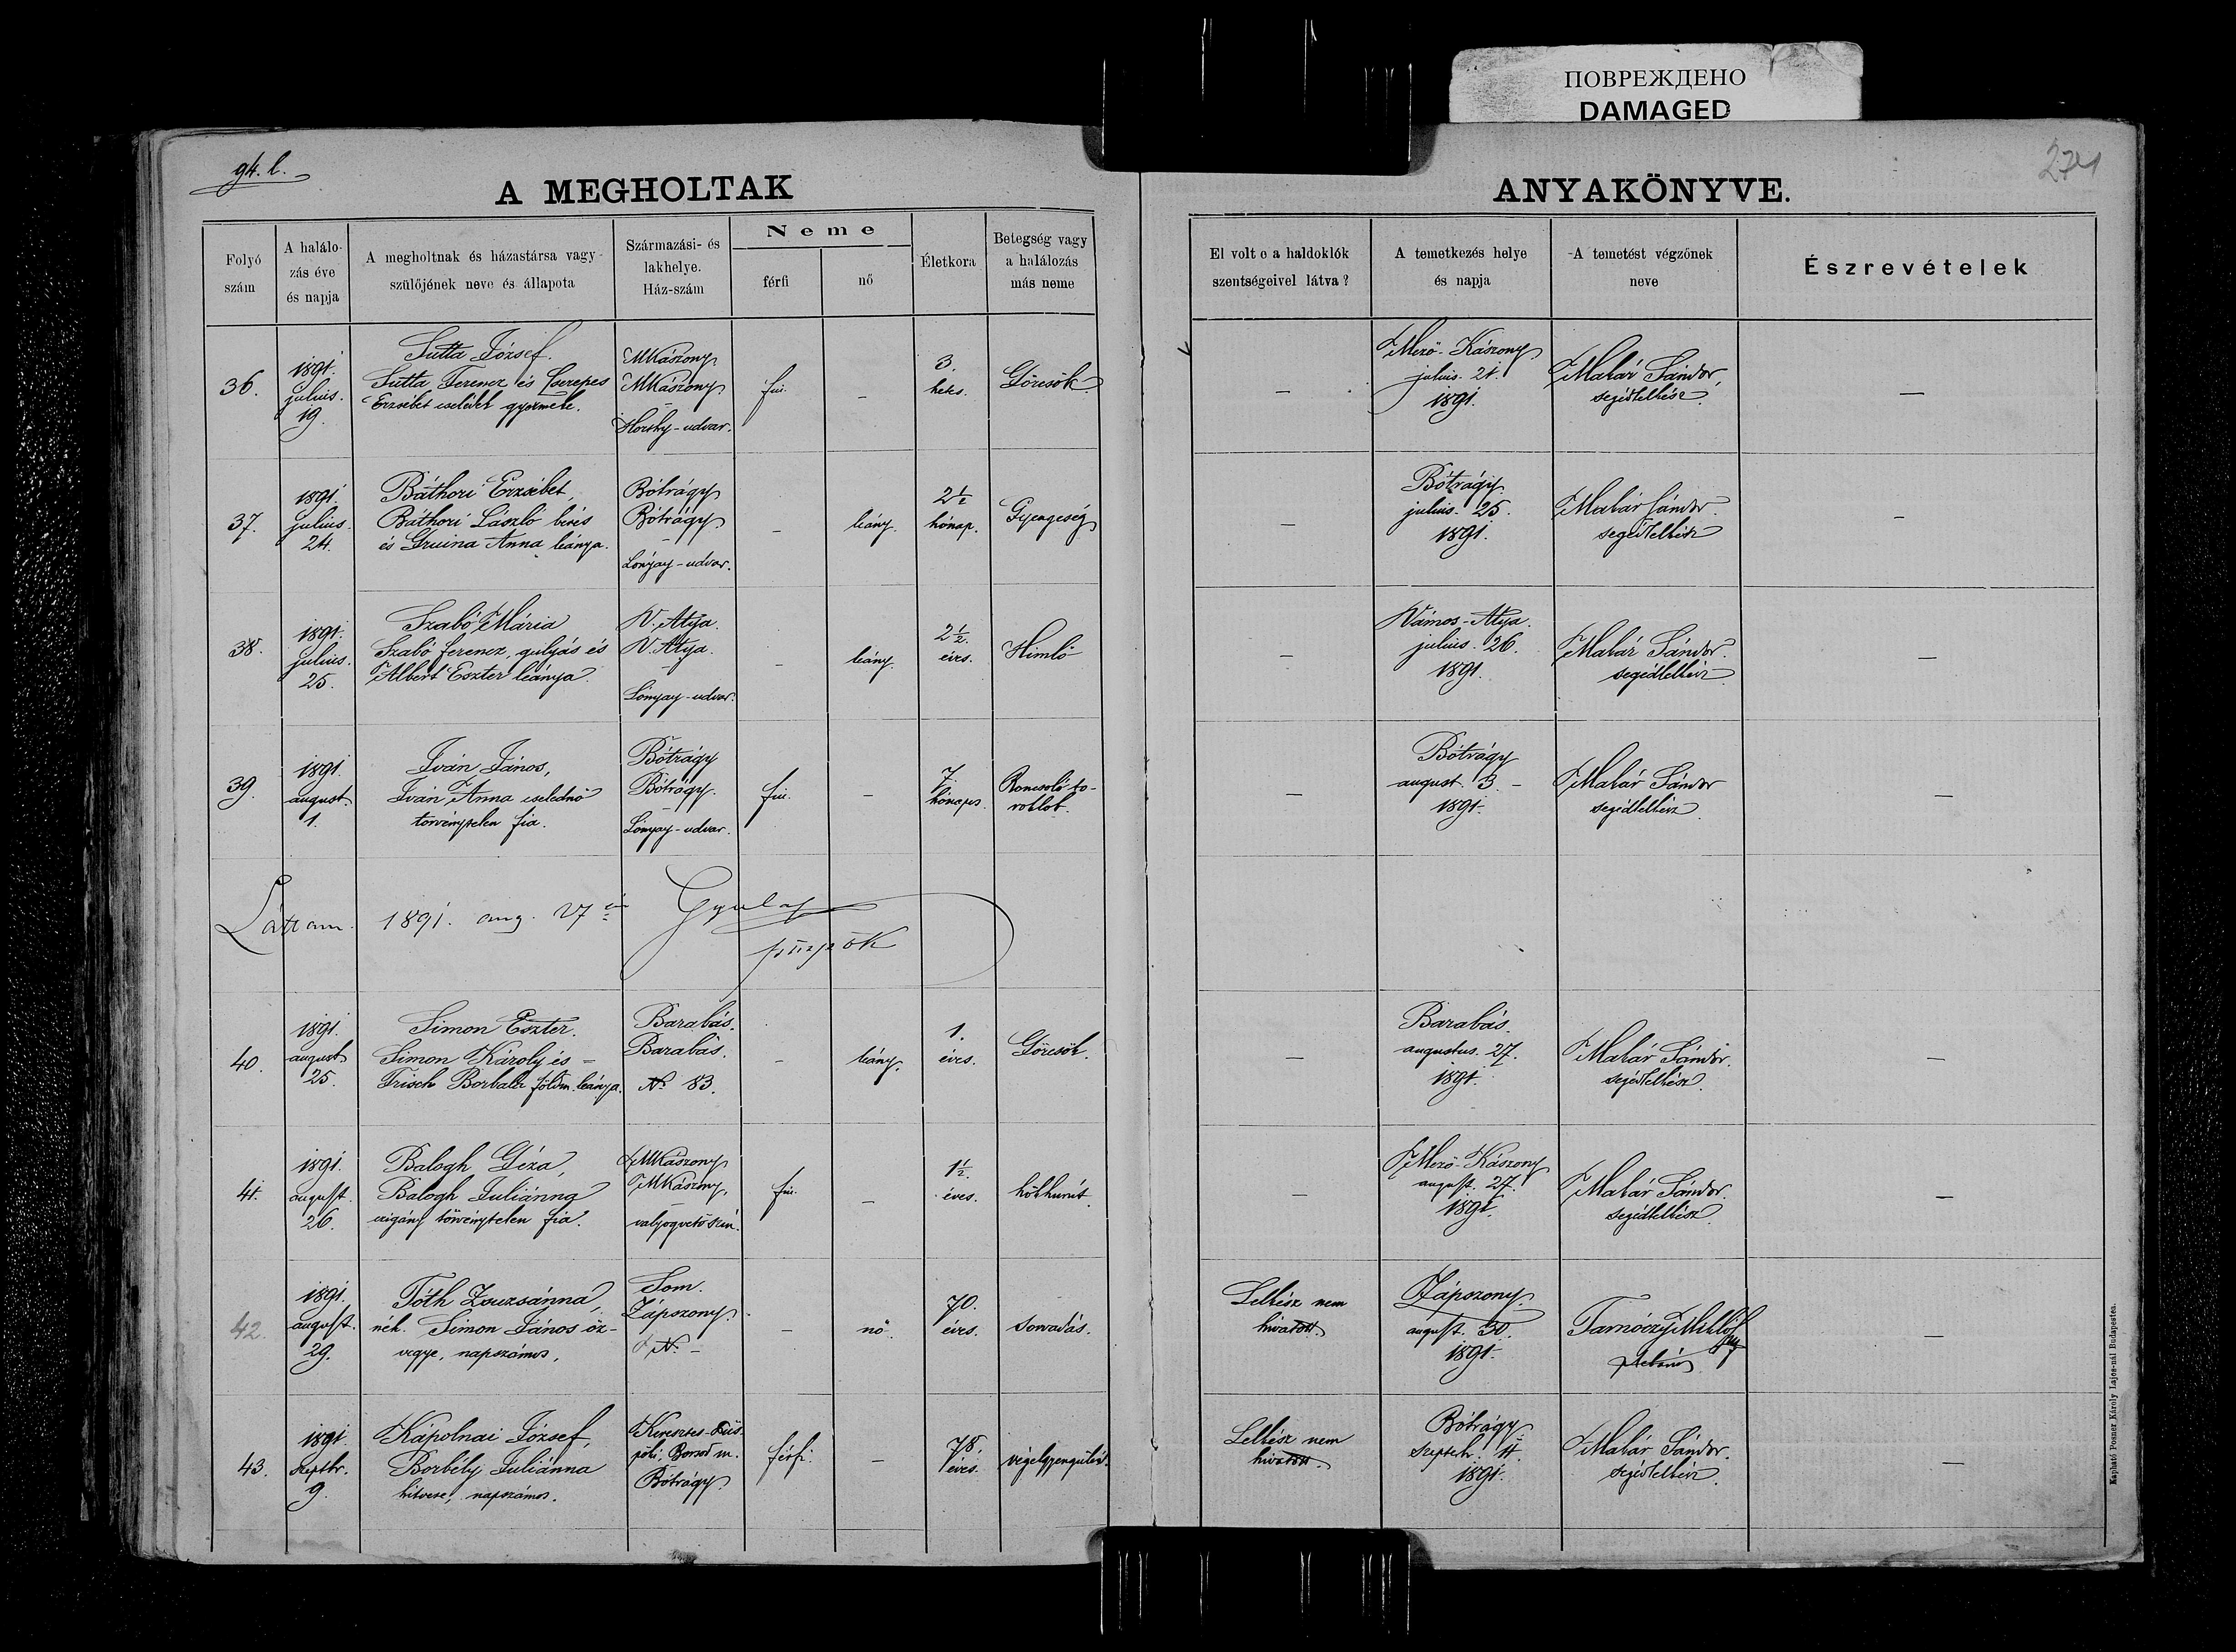 ПОВРЕЖДЕНО
DAMAGED
94. l.
274
A MEGHOLTAK
ANYAKÖNYVE.
Folyó szám
A halálo- zás éve és napja
A megholtnak és házastársa vagy szülőjének neve és állapota
Származási- és lakhelye. Ház-szám
Neme
férfi
nő
Életkora
Betegség vagy a halálozás más neme
El volt e a haldoklók szentségeivel látva?
A temetkezés helye és napja
A temetést végzőnek neve
Észrevételek
36.
1891. julius. 19.
Sutta József.
Sutta Ferencz és Cserepes
Erzsébet cselédek gyermeke.
MKászony
MKászony
Horthy-udvar.
fiú.
–
3. hetes.
Görcsök
–
Mező-Kászony
julius. 21.
1891.
Makár Sándor,
segédlelkész
–
37.
1891. julius. 24.
Báthori Erzsébet,
Báthori László béres
és Gruina Anna leánya.
Bótrágy
Bótrágy
–
Lónyay-udvar.
–
leány.
2½ hónap.
Gyengeség
–
Bótrágy.
julius. 25.
1891.
Makár Sándor.
segédlelkész
–
38.
1891. julius. 25.
Szabó Mária
Szabó ferencz, gulyás és
Albert Eszter leánya.
V. Atya.
V. Atya.
–
Lónyay-udvar.
–
leány.
2½. éves.
Himlő
–
Vámos-Atya.
julius. 26.
1891.
Makár Sándor.
segédlelkész
–
39.
1891. august. 1.
Iván János,
Iván Anna cselédnő
törvénytelen fia.
Bótrágy
Bótrágy.
–
Lónyay-udvar.
fiú.
–
7. hónapos.
Roncsoló to-
roklob.
–
Bótrágy
august. 3. –
1891.
Makár Sándor
segédlelkész.
–
Láttam. 1891. aug. 27én Gyula
püspök
40.
1891. august. 25.
Simon Eszter.
Simon Károly és –
Frisch Borbala földm. leánya.
Barabás.
Barabás.
№ 83.
–
leány.
1. éves.
Görcsök.
–
Barabás.
augustus. 27.
1891.
Makár Sándor.
segédlelkész.
–
41.
1891. august. 26.
Balogh Géza,
Balogh Juliánna
czigány törvénytelen fia.
MKászony
MKászony,
–
valyogvető szín.
fiú.
–
1½. éves.
hökhurút.
–
Mező-Kászony
august. 27.
1891.
Makár Sándor.
segédlelkész.
–
42.
1891. august. 29.
Tóth Zsuzsánna,
néh. Simon János öz-
vegye, napszámos,
Som.
Zápszony.
№ –
–
nő.
70. éves.
sorvadás.
Lelkész nem
hivatott.
Zápszony.
august. 30.
1891.
Tarnóczy Miklós
plebános
–
43.
1891. Szeptbr. 9.
Kápolnai József,
Borbély Juliánna
hitvese, napszámos.
Keresztes-Püs-
pöki, Borsod m.
Bótrágy
férfi.
–
78. éves.
végelgyengülés.
Lelkész nem
hivatott.
Bótrágy
szeptebr. 11.
1891.
Makár Sándor.
segédlelkész.
–
Kapható Posner Károly Lajos-nál Budapesten.